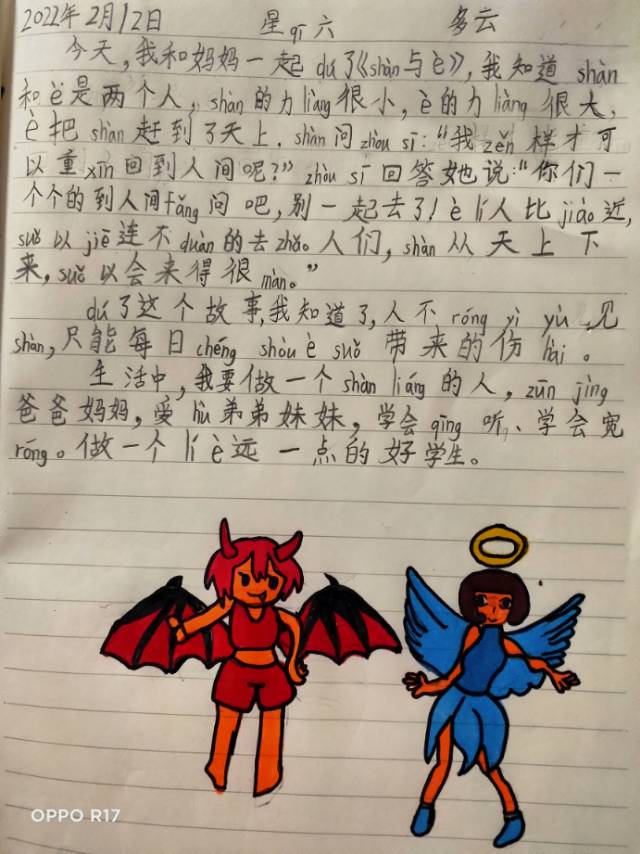 2022年2月12日 星qī六 多云
今天,我和妈妈一起dú了《shàn与è》,我知道shàn
和è是两个人,shàn的力liàng很小,è的力liàng很大,
è把shàn赶到了天上.shàn问zhòu sī:“我zěn样才可
以重xīn回到人间呢?”zhòu sī回答她说:“你们一
个个的到人间fǎng问吧,别一起去了!è lí人比jiào近,
suǒ以jiē连不duàn的去zhǎo人们,shàn从天上下
来,suǒ以会来得很màn。”
dú了这个故事,我知道了,人不róng yì yù见
shàn,只能每日chéng shòu è suǒ带来的伤hài。
生活中,我要做一个shàn liáng的人,zūn jìng
爸爸妈妈,爱hù弟弟妹妹,学会qīng听、学会宽
róng。做一个lí è远一点的好学生。
OPPO R17